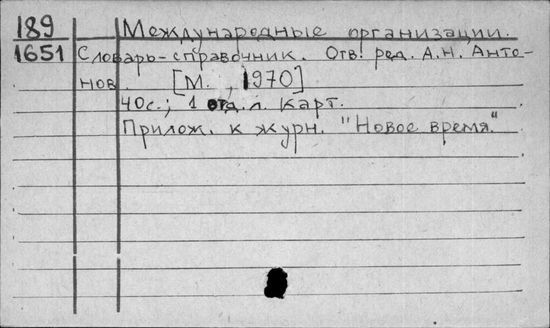 189 Международные организации.
1651 Словарь-справочник. Отв. ред. А.Н. Анто-
нов. [М., 1970]
40с.; 1 отд. л. карт.
Прилож. к журн. "Новое время."